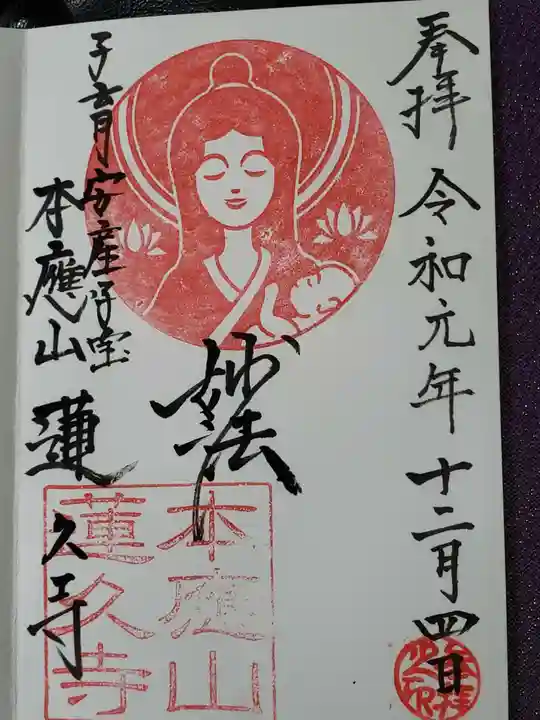 奉拝 令和元年十二月四日
妙法
子育安産子宝
本應山 蓮久寺
本應山
蓮久寺